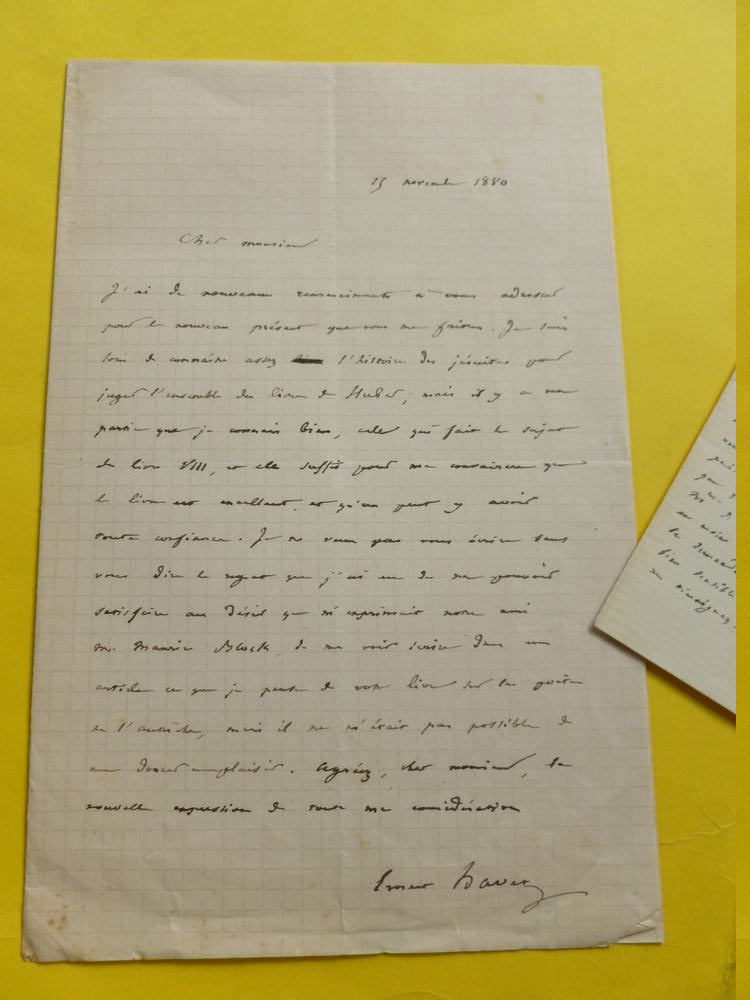 15 novembre 1880
Cher monsieur
J'ai de nouveaux remerciements à vous adresser
pour le nouveau présent que vous me faites. Je suis
loin de connaître assez l'histoire des jésuites pour
juger l'ensemble du livre de Huber; mais il y a une
partie que je connais bien, celle qui fait le sujet
du livre VIII, et elle suffit pour me convaincre que
le livre est excellent, et qu'on peut y avoir
toute confiance. Je ne veux pas vous écrire sans
vous dire le regret que j'ai eu de ne pouvoir
satisfaire au désir que m'exprimait notre ami
M. Maurice Block, de me voir écrire dans un
article ce que je pense de votre livre sur les poètes
de l'Autriche, mais il ne m'était pas possible de
me donner ce plaisir. Agréez, cher monsieur, la
nouvelle expression de toute ma considération
Ernest Havet